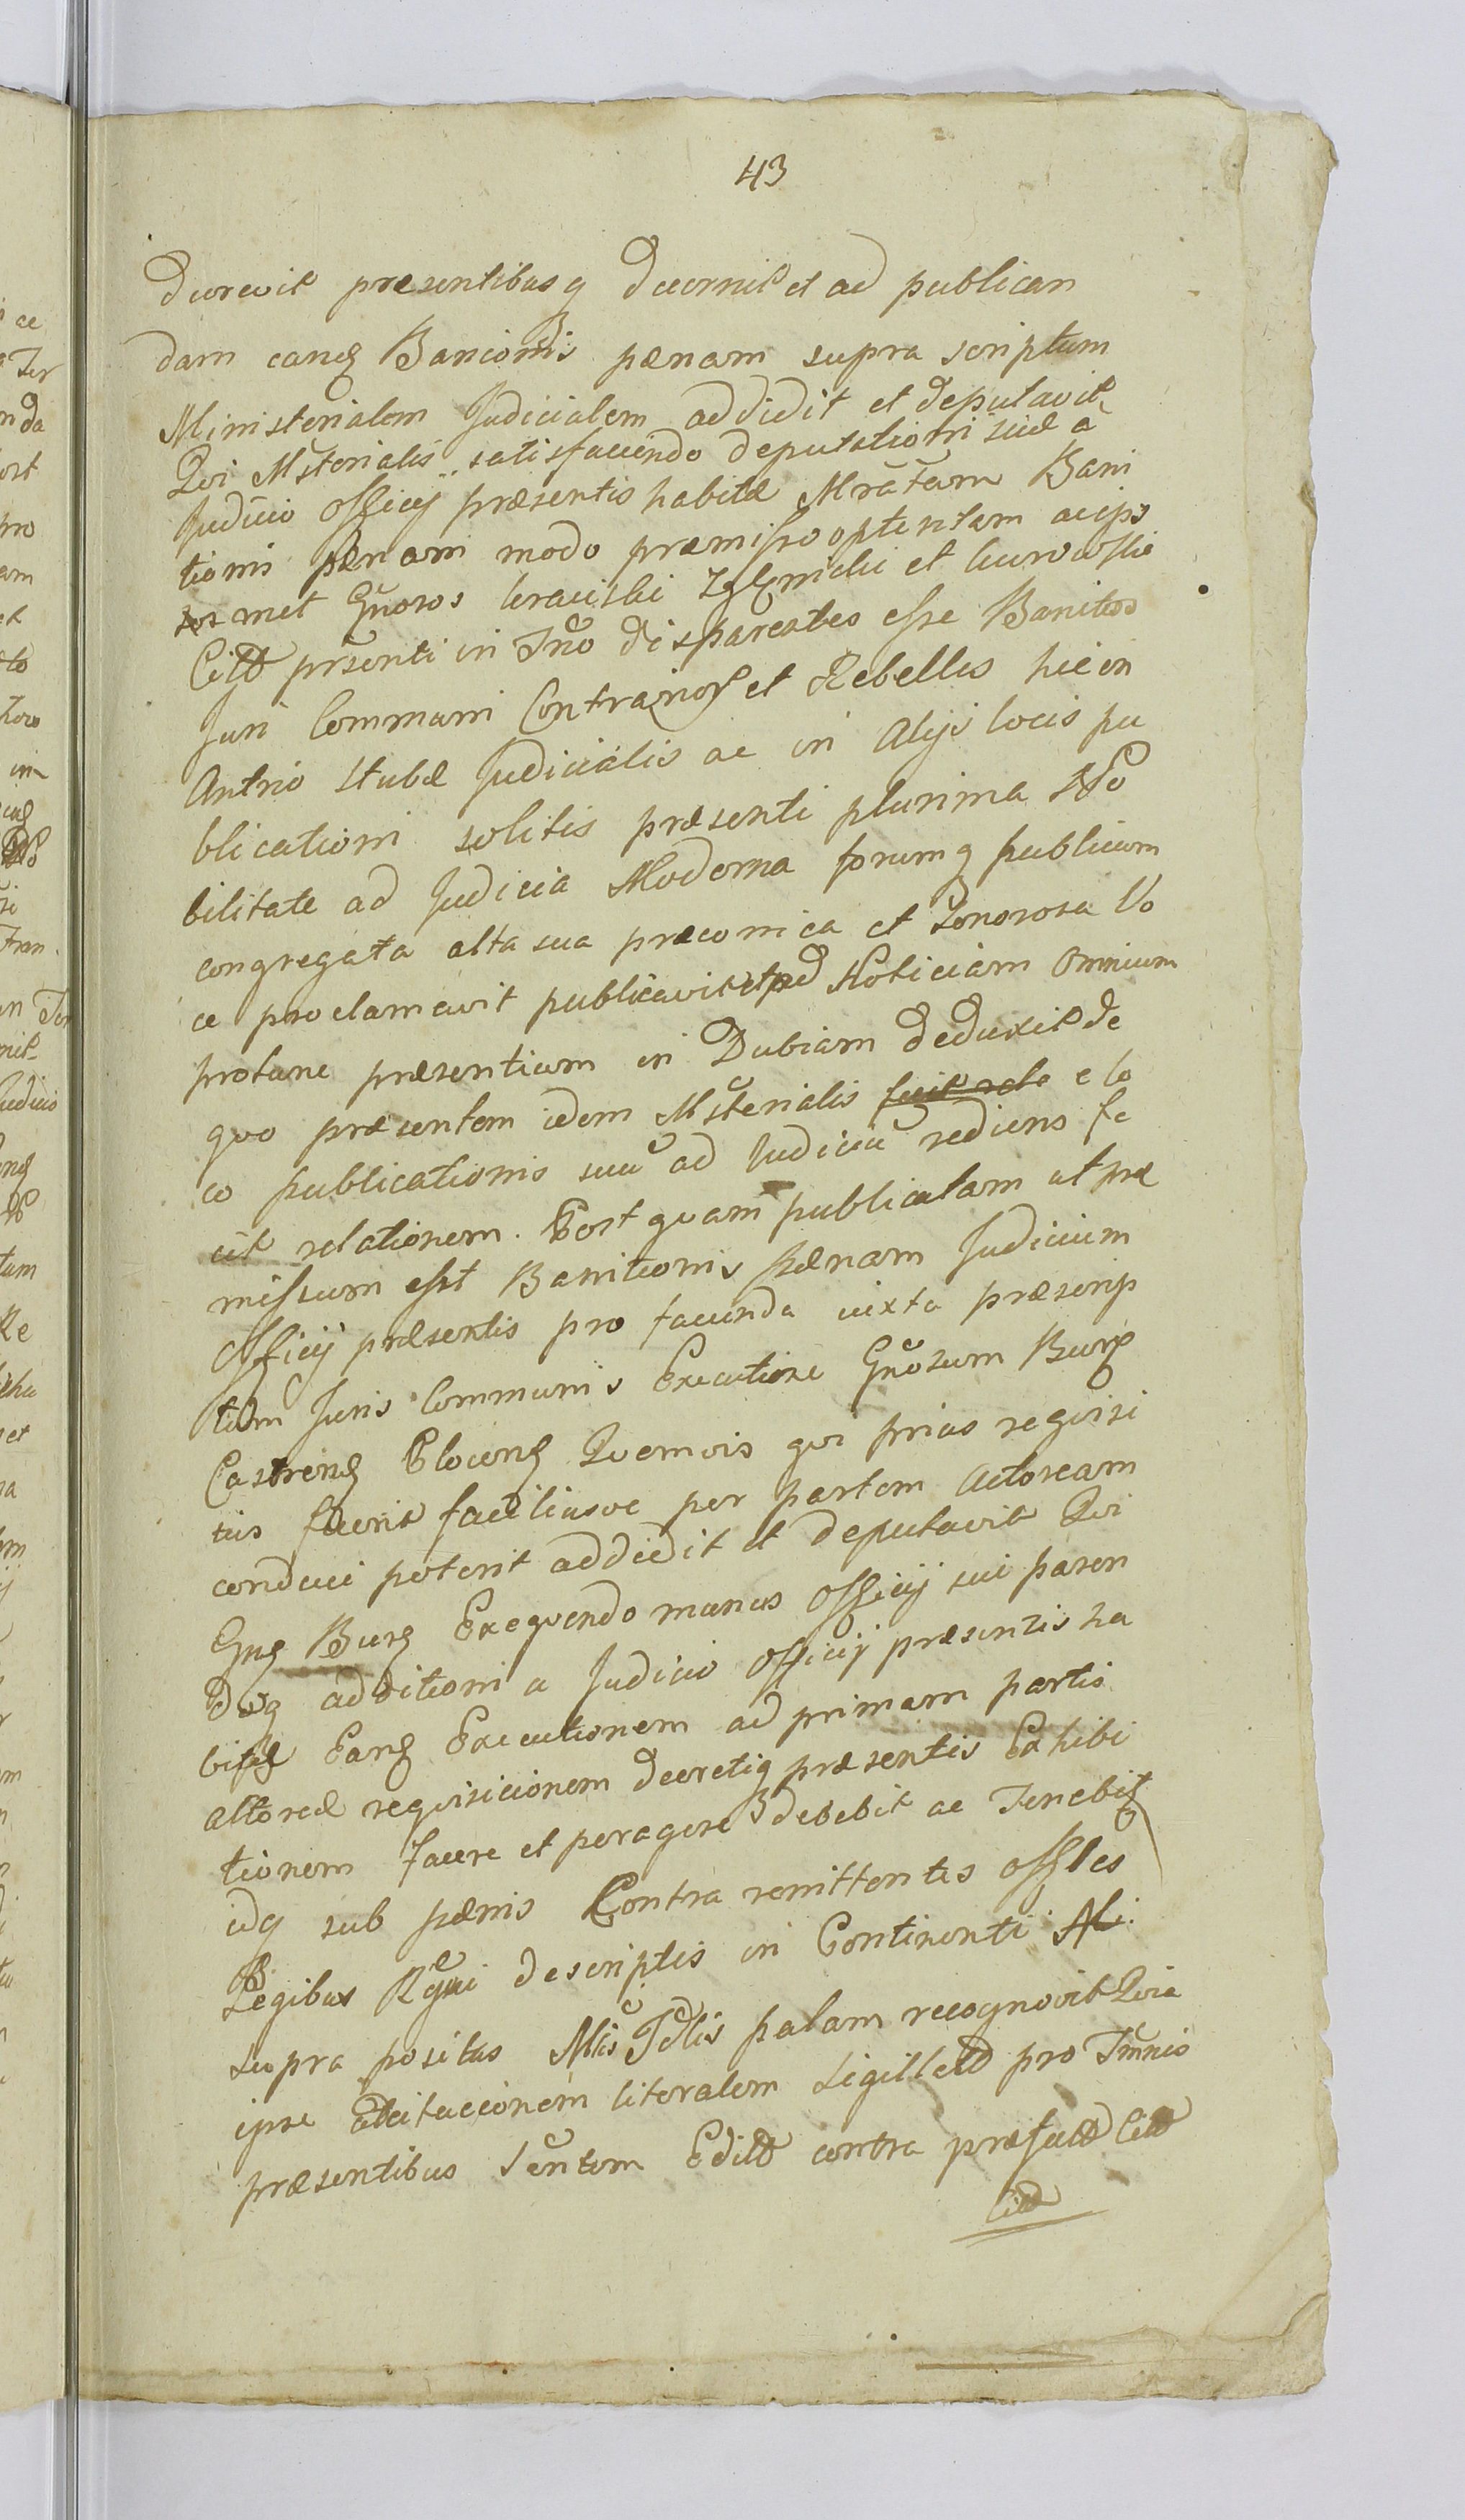 43
Decrevit præsentibusq Decernit et ad publican
dam eanq Bancionis pænam supra scriptum
Ministerialem Judicialem addidit et deputavit
Qvi Msterialis satisfaciendo deputationi suæ a
Judicio Officij præsentis habitæ Mratam Bani
tionis pænam modo præmisso optentam ac ips
met Gnosos et
Citto prsenti in Tno disparentes esse Banitos
Juri Communi Contrarios et Rebelles hic in
Antrio stubæ Judicialis ac in Alijs locis pu
blicationi solitis præsenti plurima No
bilitate ad Judicia Moderna forumq publicum
congregata alta sua præconica et Sonorosa Vo
ce proclamavit publicavit et ad Noticiam Omnium
protunc præsentium in Dubiam deduxit de
quo præsentem idem Msterialis e lo
co publicationis suæ ad Judiciu rediens fe
cit relationem. Post qvam publicatam ut præ
missum est Banitionis pænam Judicium
Officij præsentis pro facienda iuxta præscrip
tum Juris Communis Executione Gnosum Burg
Castrenq Plocenq Qvemvis qvi prius reqvisi
tus fuerit faciliusve per partem Actoream
conduci poterit addidit et deputavit Qvi
Gnq Burg Exeqvendo munus Officij sui paren
doq additioni a Judicio Officij præsentis ha
bitæ Eanq Executionem ad primam partis
Actoreæ reqvisicionem decretiq præsentis Exhibi
tionem facere et peragere debebit ac Tenebit
idq sub pænis Contra remittentes Offles
Legibus Regni descriptis in Continenti
supra positus Mlis Tdlis palam recognovit Qvia
ipse Citacionem literalem Sigillatt pro Tmnis
præsentibus Edittt contra præfatt Citt
Citt